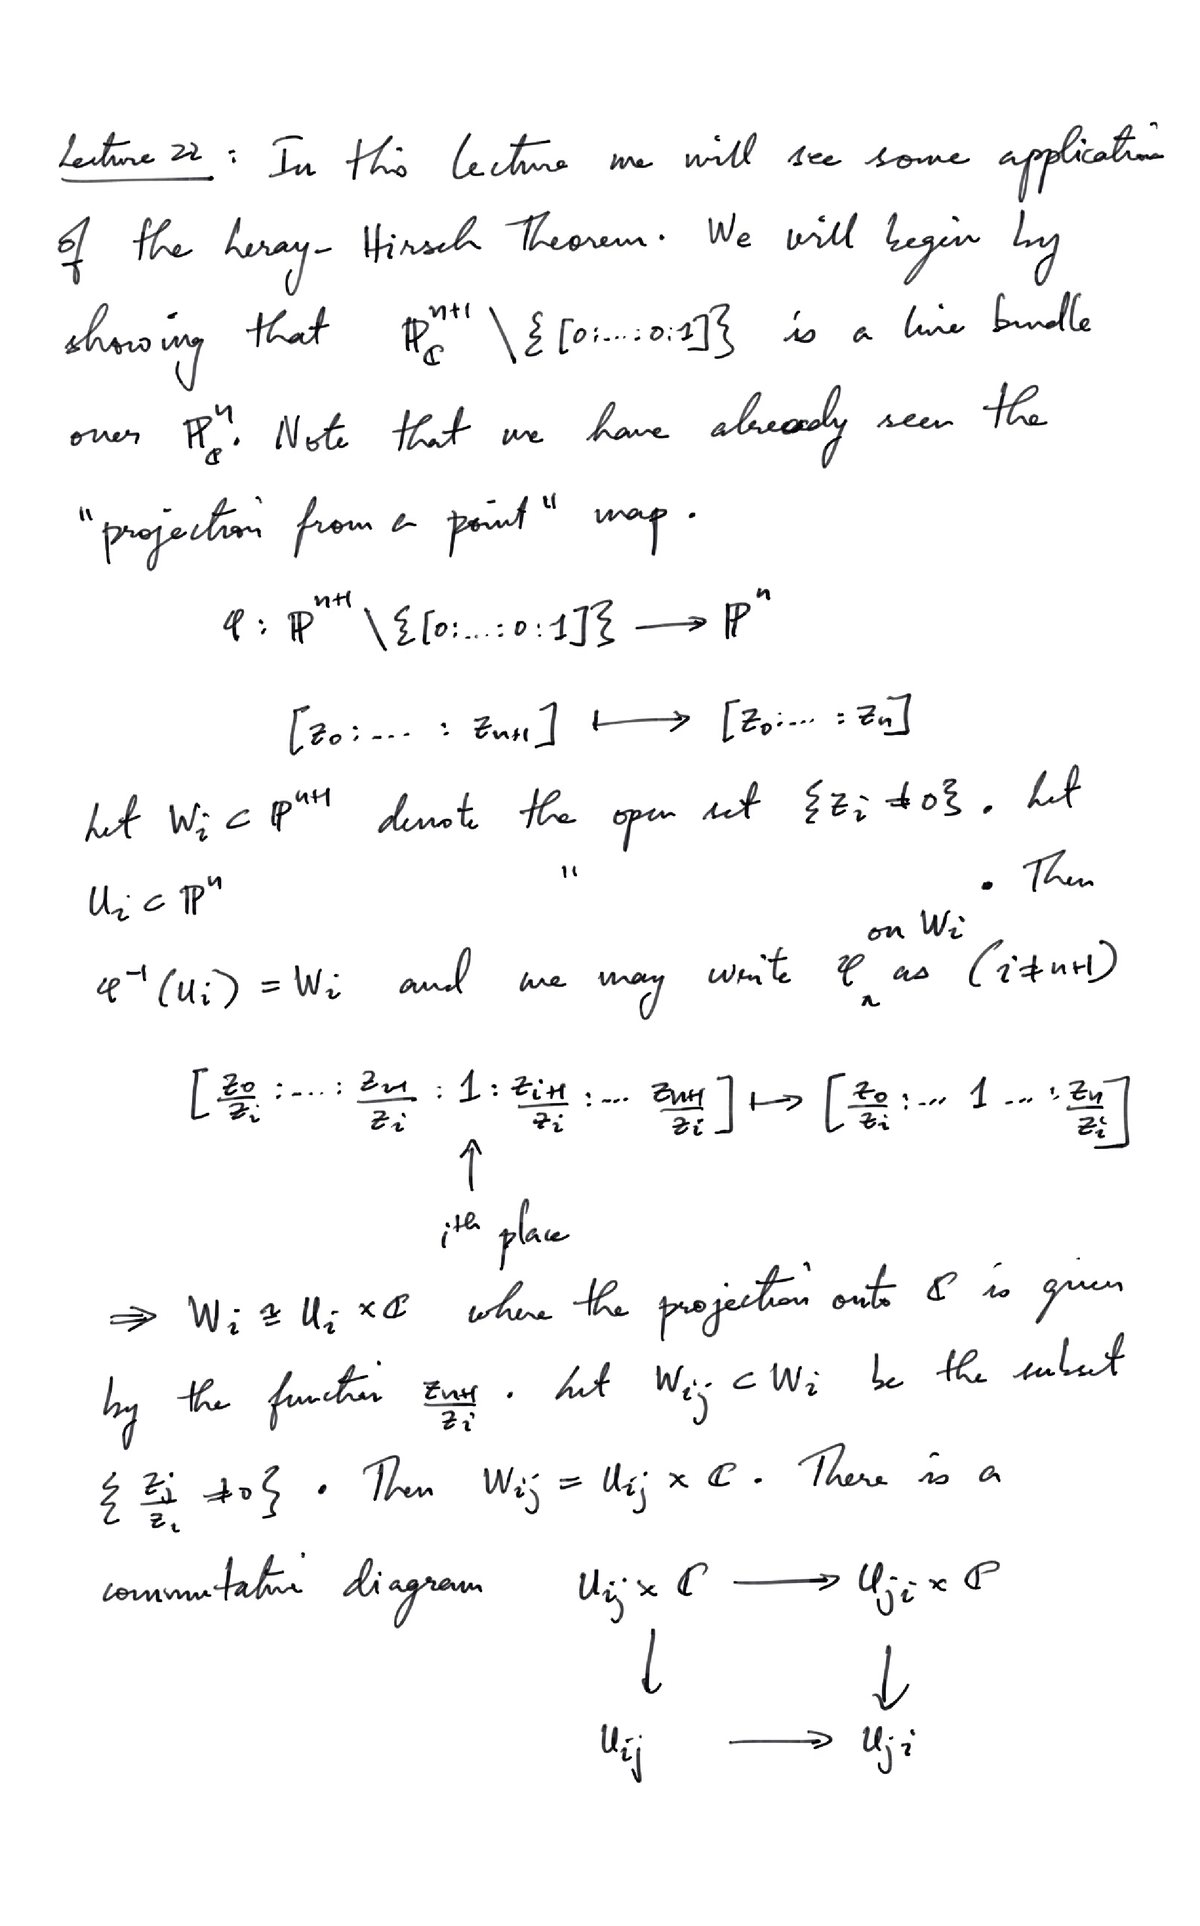 Lecture 22 : In this lecture we will see some application
of the Leray-Hirsch Theorem. We will begin by
showing that ℙ_ℂ^{n+1} \ {[0:...:0:1]} is a line bundle
over ℙ_ℂ^n. Note that we have already seen the
"projection from a point" map.
φ : ℙ^{n+1} \ {[0:...:0:1]} ⟶ ℙ^n
[z_0:... : z_{n+1}] ⟼ [z_0:... : z_n]
Let W_i ⊂ ℙ^{n+1} denote the open set {z_i ≠ 0}. Let
U_i ⊂ ℙ^n " . Then
φ^{-1}(U_i) = W_i and we may write φ on W_i as (i≠n+1)
[z_0/z_i :...: z_{i-1}/z_i : 1 : z_{i+1}/z_i :... z_{n+1}/z_i] ↦ [z_0/z_i :... 1 ... : z_n/z_i]
↑
i^{th} place
⇒ W_i ≅ U_i × ℂ where the projection onto ℂ is given
by the function z_{n+1}/z_i . Let W_{ij} ⊂ W_i be the subset
{z_j/z_i ≠ 0} . Then W_{ij} = U_{ij} × ℂ . There is a
commutative diagram U_{ij} × ℂ ⟶ U_{ji} × ℂ
↓ ↓
U_{ij} ⟶ U_{ji}